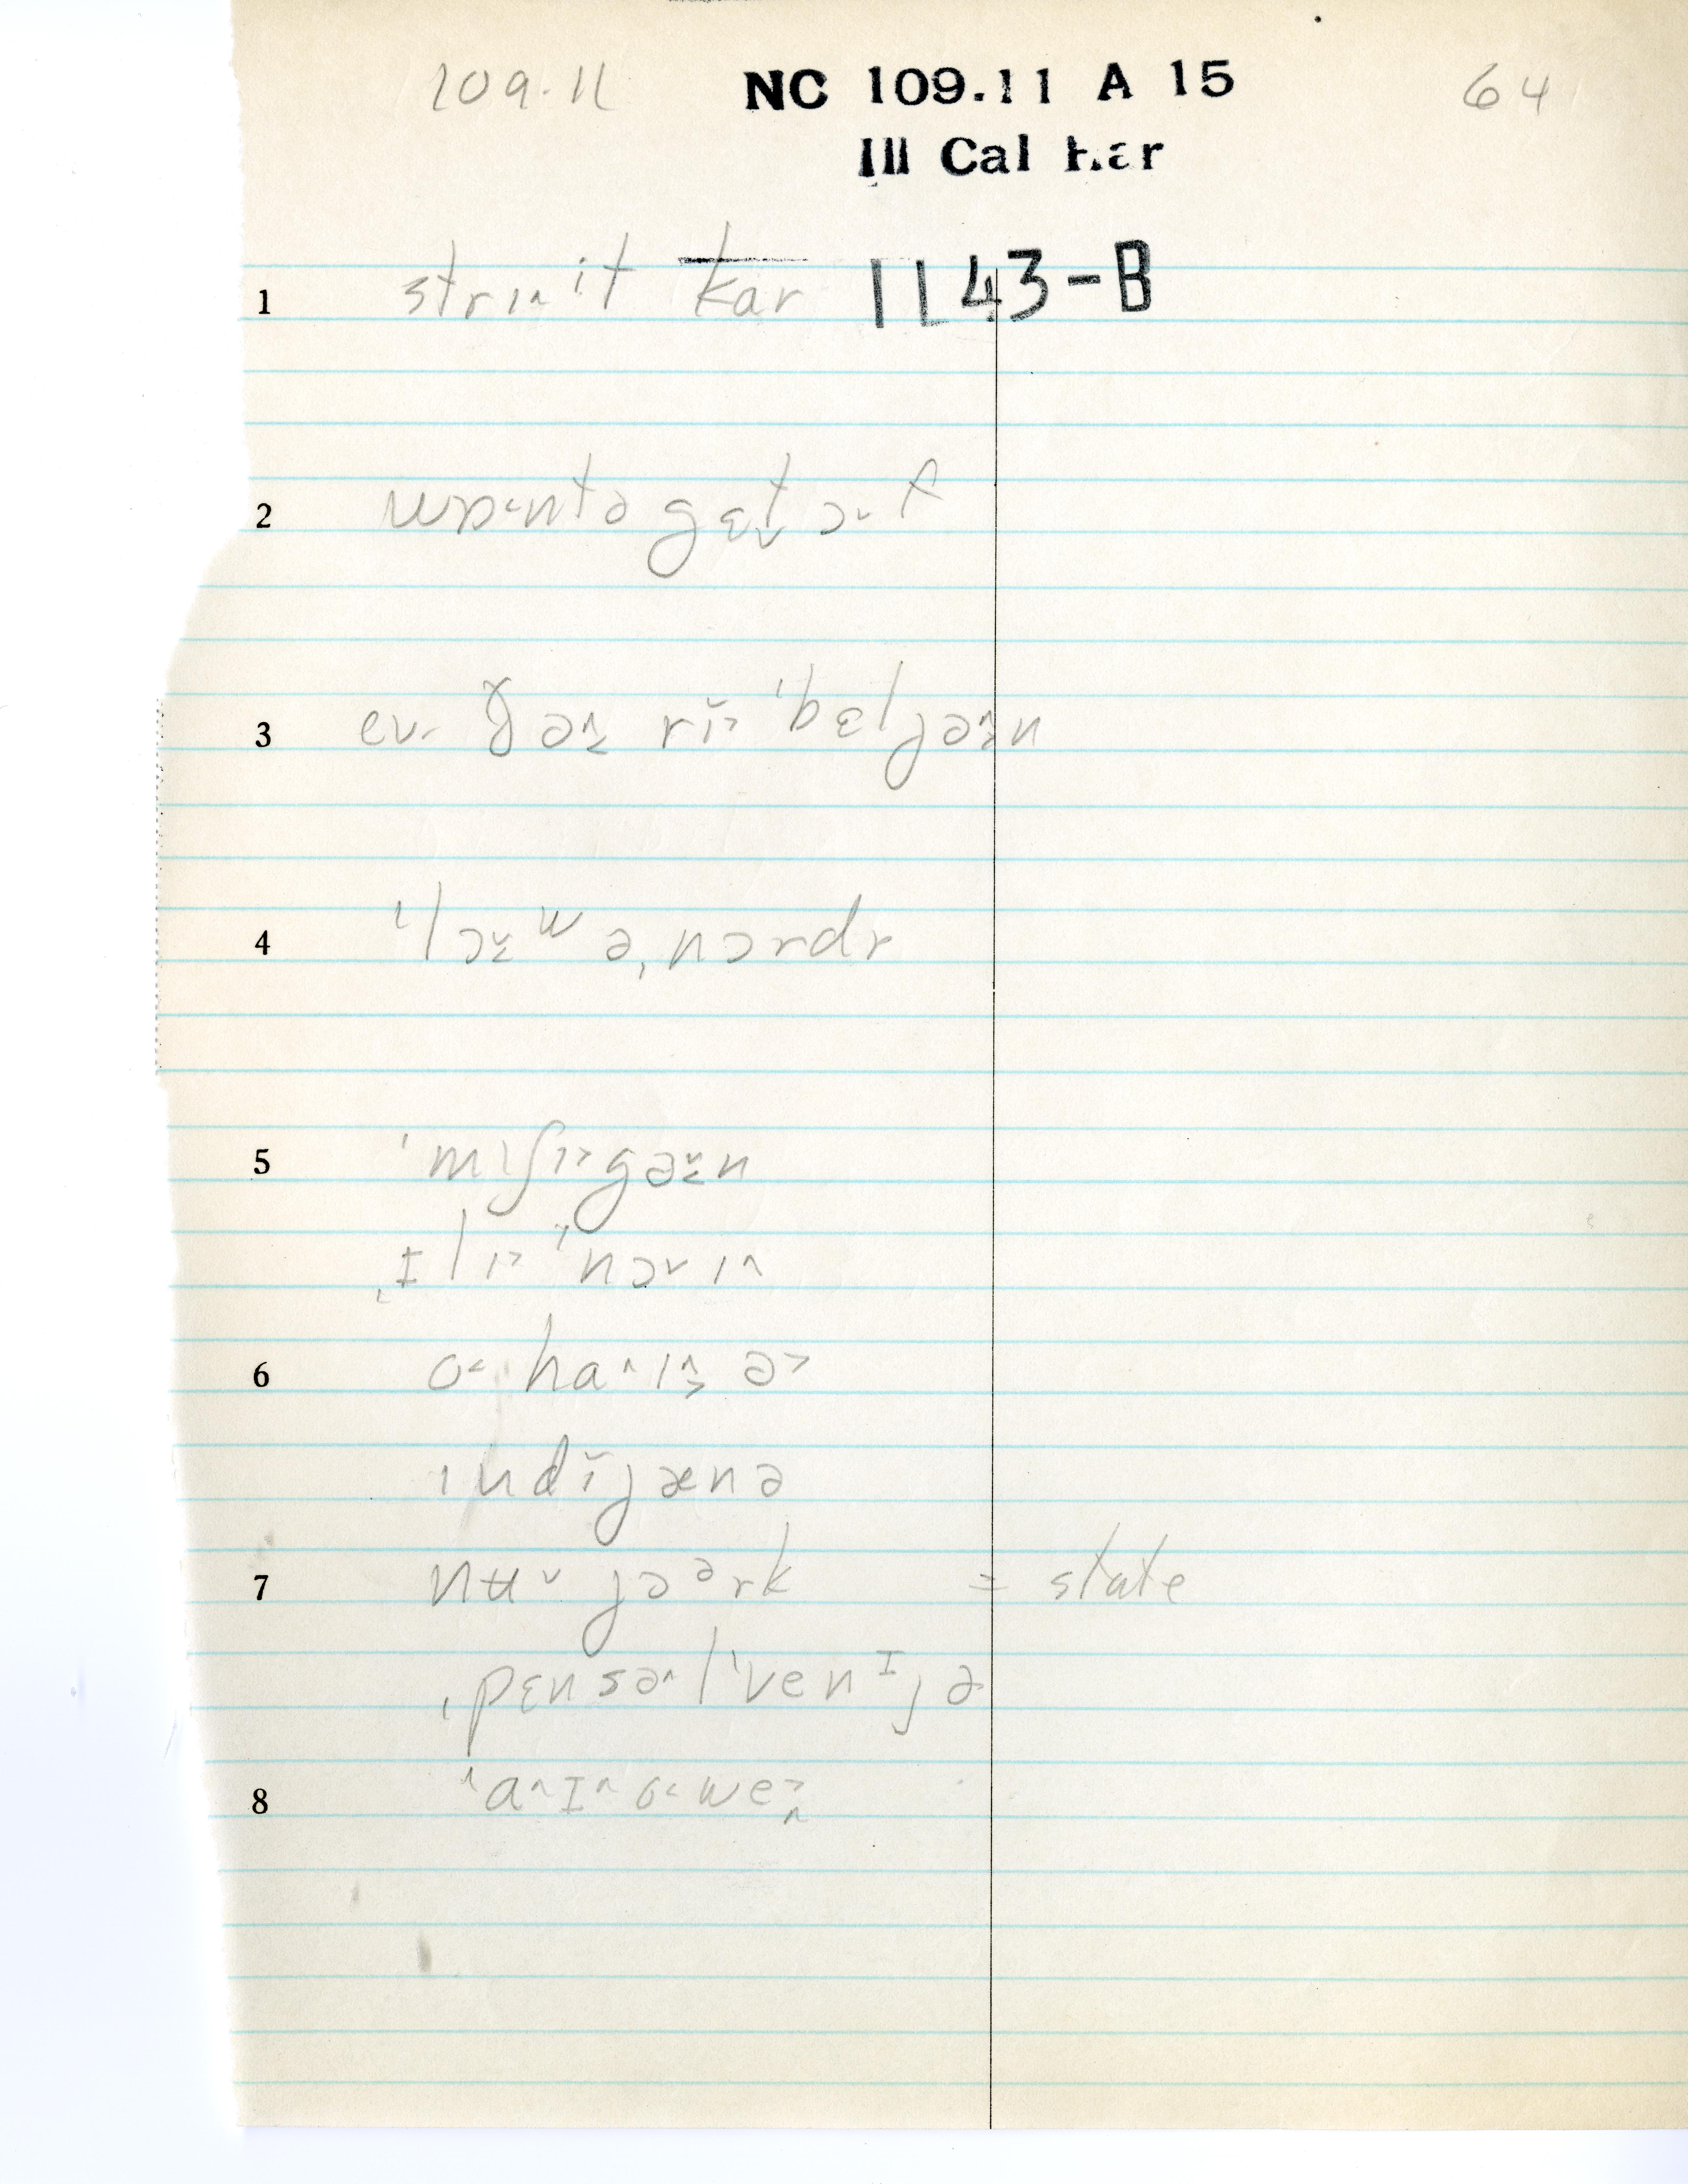 109.11 NC 109.11 A 15 64
Ill Cal Har
1 strɪ˄it kar 1143-B
2 wɒ˂ntə gɛ˅t ɔ˅f
3 ev˗ ðə˄z rɪ̆˃ ˈbɛljə˄n
4 ˈlɔ˅ʷ ə ˌnɔrdr
5 ˈmɪʃɪ˃gə˅n
ˌɪlɪ˃ˈnɔ˅ɪ˄
6 o˂ ha˄ɪ˄ ə˃
ɪndĭjænə
7 nʉ˅ jɔᵊrk = state
ˌpɛnsə˄lˈvenᴵjə
8 ˈa˄ɪ˄o˂we˃